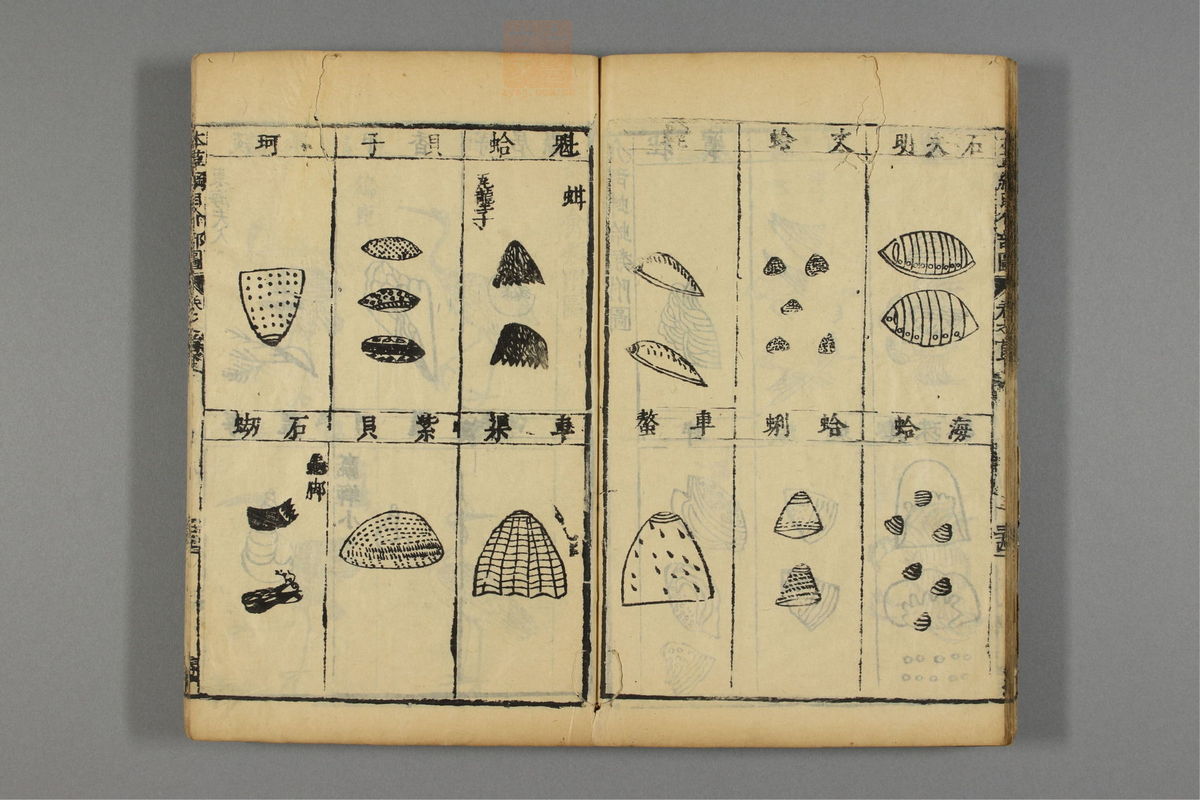 石決明
文蛤
海蛤
蛤蜊
車螯
魁蛤
蚶
瓦壟子
貝子
珂
車渠
紫貝
石蜐
龜脚
本草綱目介部圖